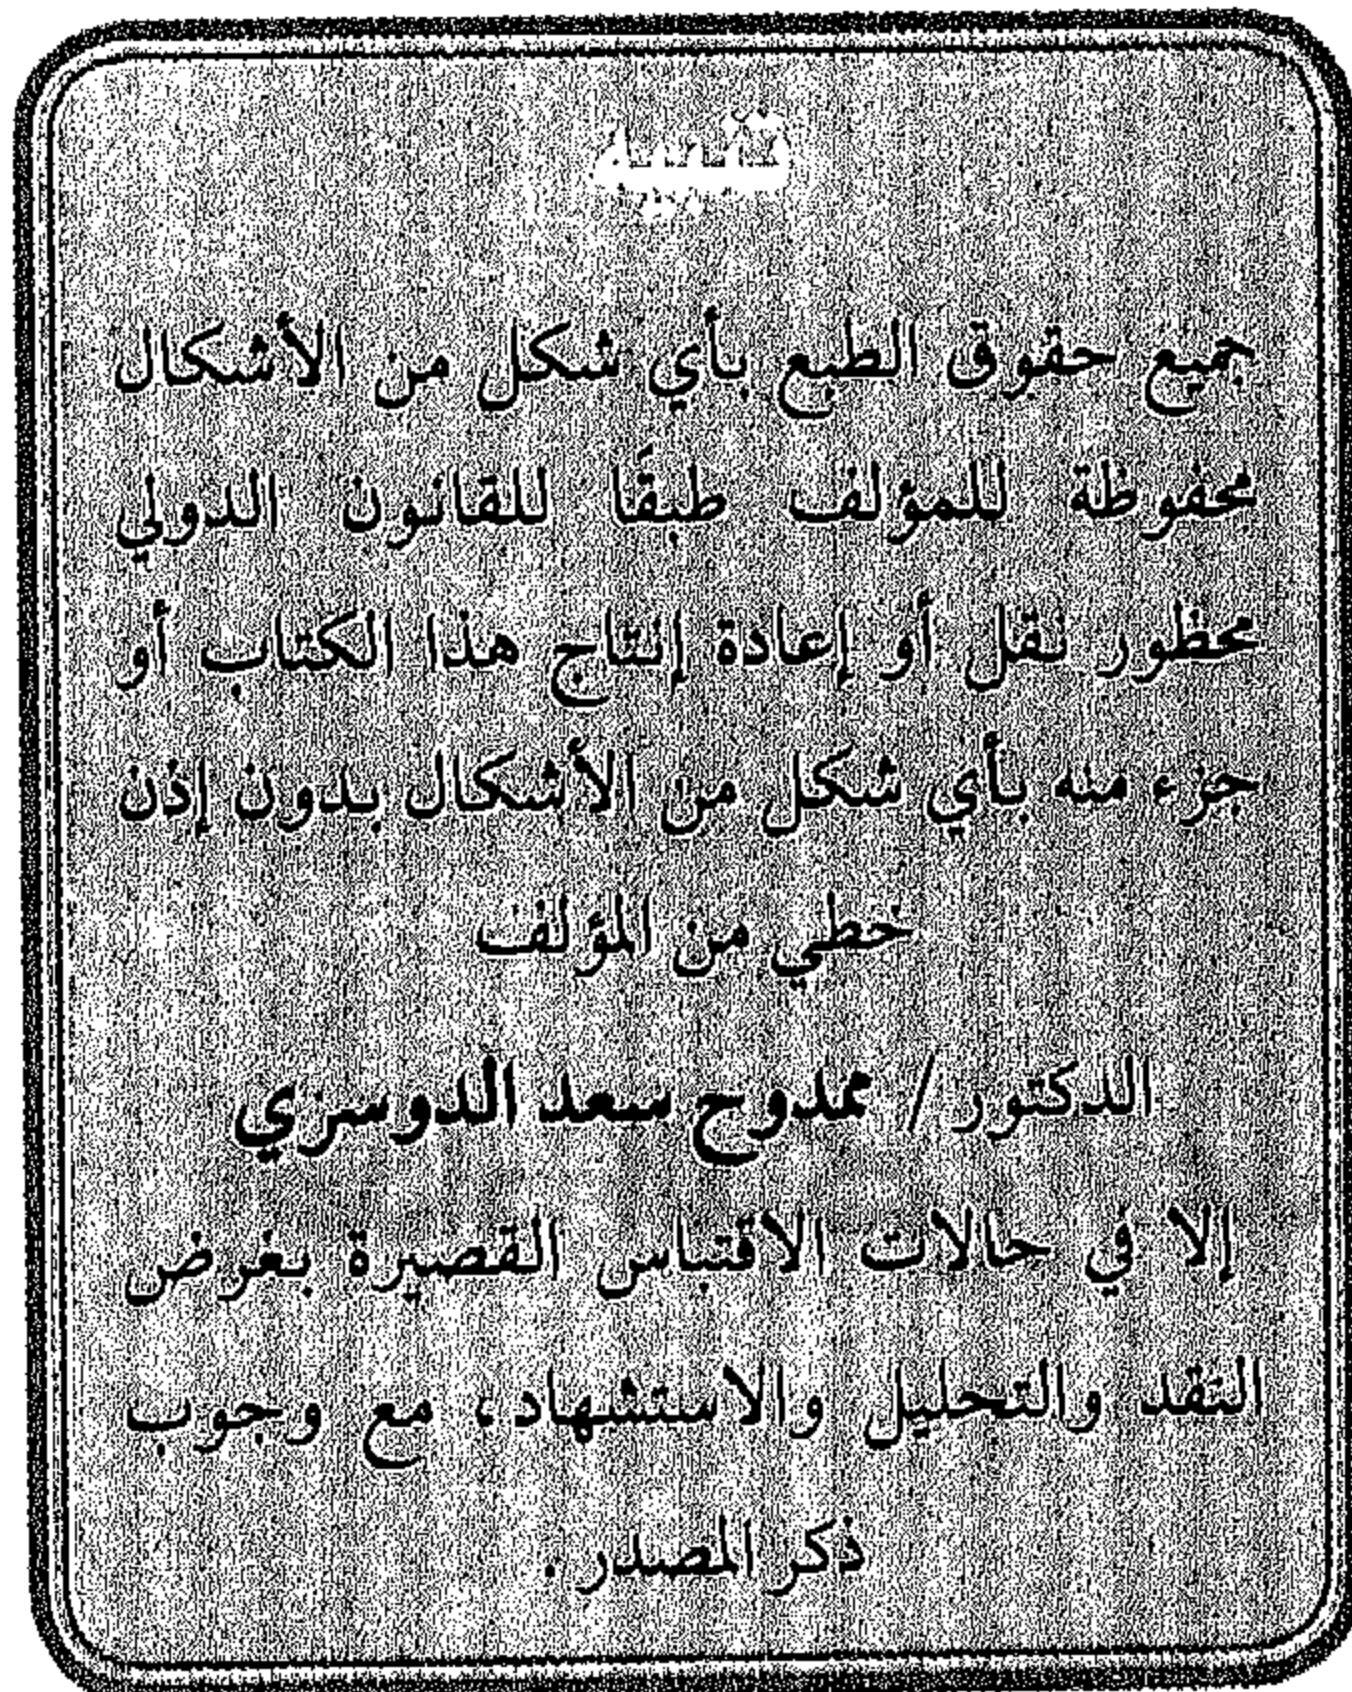 تنبيه
جميع حقوق الطبع بأي شكل من الأشكال
محفوظة للمؤلف طبقًا للقانون الدولي
محظور نقل أو إعادة إنتاج هذا الكتاب أو
جزء منه بأي شكل من الأشكال بدون إذن
خطي من المؤلف
الدكتور / ممدوح سعد الدوسري
إلا في حالات الاقتباس القصيرة بغرض
النقد والتحليل والاستشهاد، مع وجوب
ذكر المصدر .